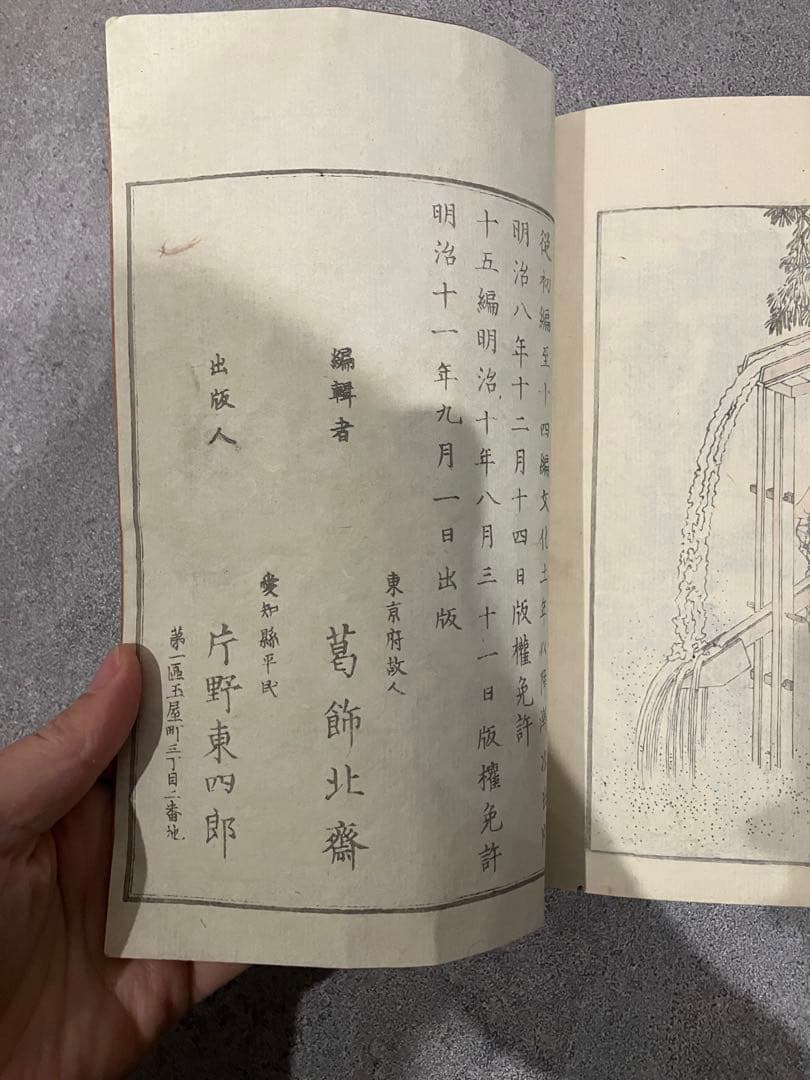 從初編至十四編文化十年以降漸次
明治八年十二月十四日版權免許
十五編明治十年八月三十一日版權免許
明治十一年九月一日出版
東京府故人
編輯者 葛飾北齋
愛知縣平民
出版人 片野東四郎
第一區玉屋町三丁目二番地